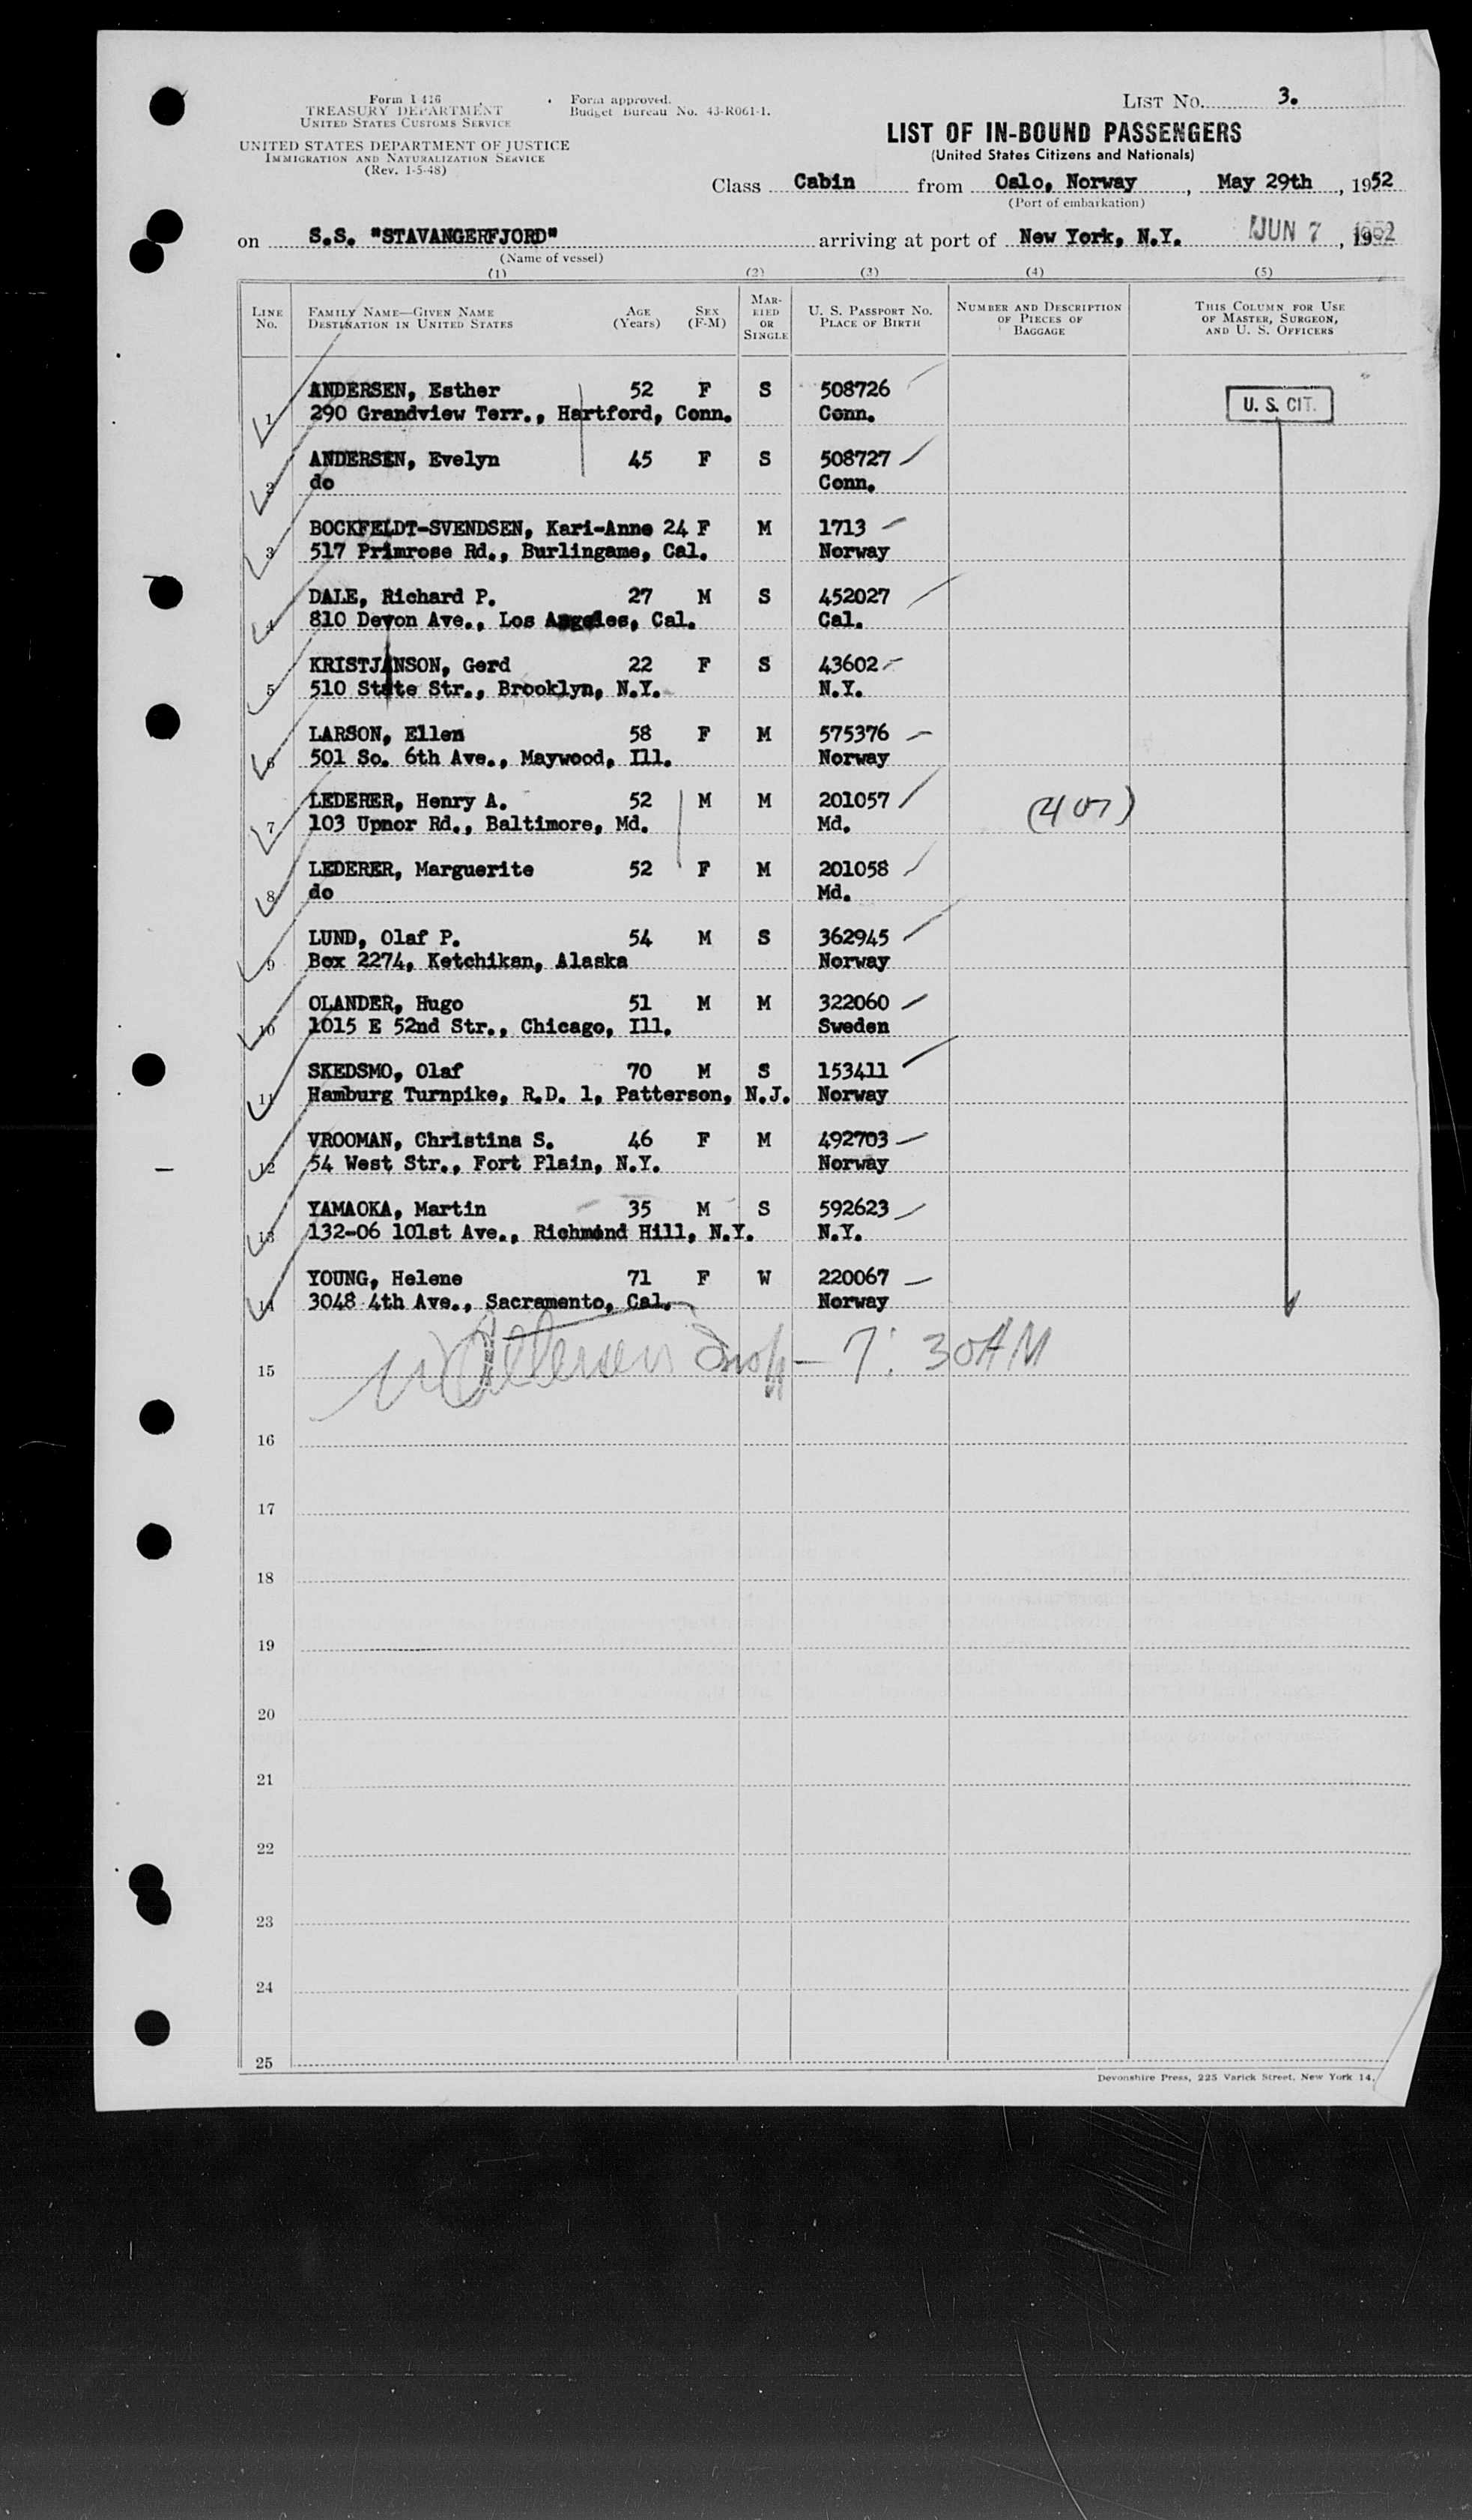 Form I 416
TREASURY DEPARTMENT
UNITED STATES CUSTOMS SERVICE
UNITED STATES DEPARTMENT OF JUSTICE
IMMIGRATION AND NATURALIZATION SERVICE
(Rev. 1-5-48)
Form approved.
Budget Bureau No. 43-R061-1.
LIST No. 3.
LIST OF IN-BOUND PASSENGERS
(United States Citizens and Nationals)
Class Cabin from Oslo, Norway, May 29th, 1952
(Port of embarkation)
on S.S. "STAVANGERFJORD" arriving at port of New York, N.Y. JUN 7, 1952
(Name of vessel)
(1) (2) (3) (4) (5)
LINE No. FAMILY NAME—GIVEN NAME DESTINATION IN UNITED STATES AGE (Years) SEX (F-M) MARRIED OR SINGLE U. S. PASSPORT NO. PLACE OF BIRTH NUMBER AND DESCRIPTION OF PIECES OF BAGGAGE THIS COLUMN FOR USE OF MASTER, SURGEON, AND U. S. OFFICERS
ANDERSEN, Esther 52 F S 508726 U. S. CIT.
1 290 Grandview Terr., Hartford, Conn. Conn.
ANDERSEN, Evelyn 45 F S 508727
2 do Conn.
BOCKFELDT-SVENDSEN, Kari-Anne 24 F M 1713
3 517 Primrose Rd., Burlingame, Cal. Norway
DALE, Richard P. 27 M S 452027
4 810 Devon Ave., Los Angeles, Cal. Cal.
KRISTJANSON, Gerd 22 F S 43602
5 510 State Str., Brooklyn, N.Y. N.Y.
LARSON, Ellen 58 F M 575376
6 501 So. 6th Ave., Maywood, Ill. Norway
LEDERER, Henry A. 52 M M 201057
7 103 Upnor Rd., Baltimore, Md. Md.
LEDERER, Marguerite 52 F M 201058
8 do Md.
LUND, Olaf P. 54 M S 362945
9 Box 2274, Ketchikan, Alaska Norway
OLANDER, Hugo 51 M M 322060
10 1015 E 52nd Str., Chicago, Ill. Sweden
SKEDSMO, Olaf 70 M S 153411
11 Hamburg Turnpike, R.D. 1, Patterson, N.J. Norway
VROOMAN, Christina S. 46 F M 492703
12 54 West Str., Fort Plain, N.Y. Norway
YAMAOKA, Martin 35 M S 592623
13 132-06 101st Ave., Richmond Hill, N.Y. N.Y.
YOUNG, Helene 71 F W 220067
14 3048 4th Ave., Sacramento, Cal. Norway
7:30AM
15
16
17
18
19
20
21
22
23
24
25
Devonshire Press, 225 Varick Street, New York 14.